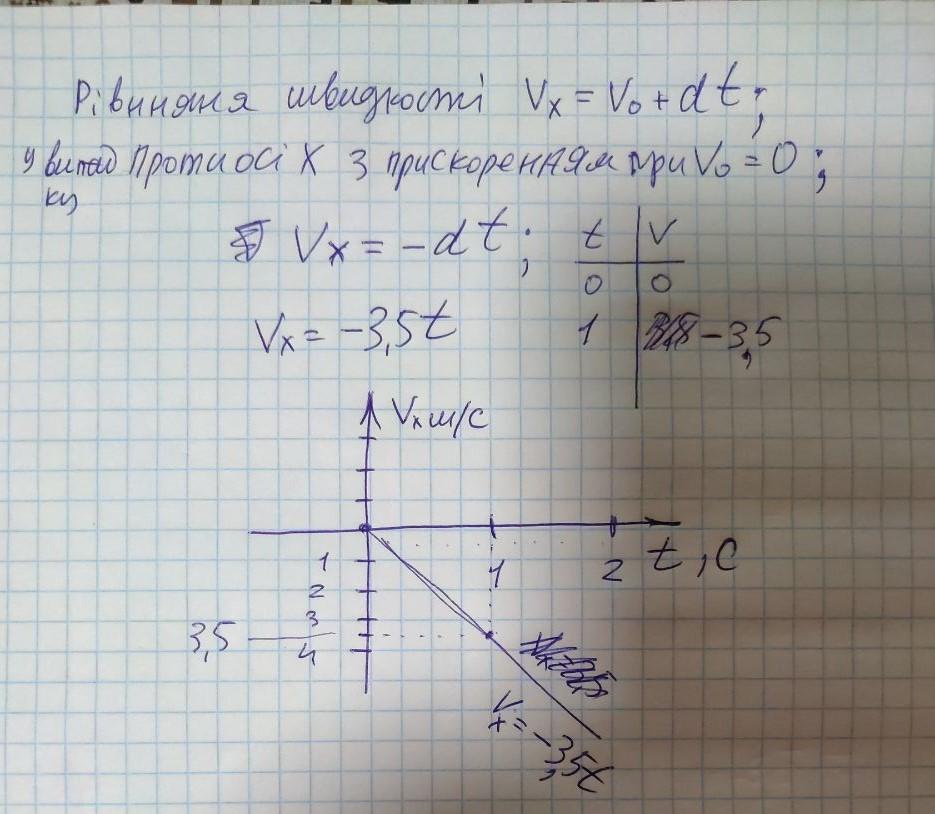 Рівняння швидкості Vₓ = V₀ + at;
у випадку Проти осі X з прискоренням при V₀ = 0;
Vₓ = -at;
t V
0 0
Vₓ = -3,5t
1 -3,5
Vₓ м/с
1 2 t, с
1
2
3
3,5
4
Vₓ = -3,5t